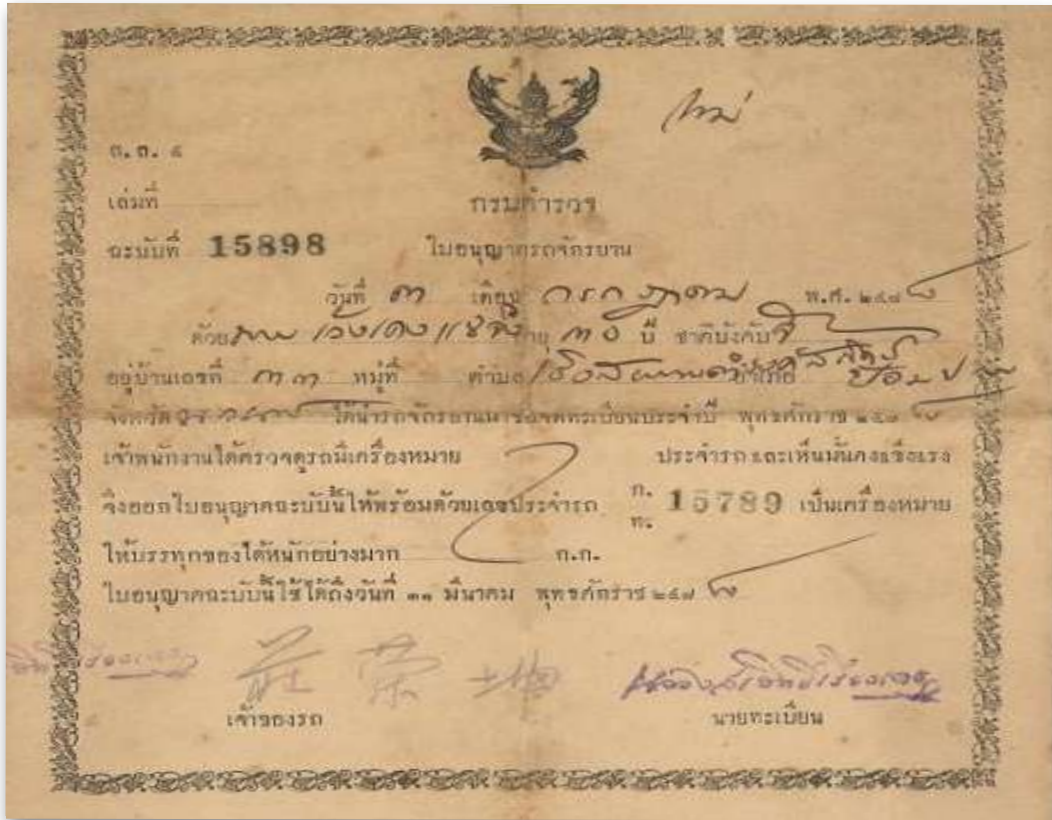 ใหม่
ต. ถ. ๕
เล่มที่
กรมตำรวจ
ฉะบับที่ 15898
ใบอนุญาตรถจักรยาน
วันที่ ๓ เดือน กรกฎาคม พ.ศ. ๒๔๗๘
ด้วย นาย อายุ ปี ชาติบังคับ จีน
อยู่บ้านเลขที่ ๓๓ หมู่ที่ ตำบล อำเภอ ป้อมปราบ
จังหวัด ได้นำรถจักรยานมาขอจดทะเบียนประจำปี พุทธศักราช ๒๔๗๘
เจ้าพนักงานได้ตรวจดูรถมีเครื่องหมาย ประจำรถและเห็นมั่นคงแข็งแรง
จึงออกใบอนุญาตฉะบับนี้ให้พร้อมด้วยเลขประจำรถ ก. ท. 15789 เป็นเครื่องหมาย
ให้บรรทุกของได้หนักอย่างมาก ก.ก.
ใบอนุญาตฉะบับนี้ใช้ได้ถึงวันที่ ๓๑ มีนาคม พุทธศักราช ๒๔๗๘
莊 榮 坤
เจ้าของรถ
นายทะเบียน